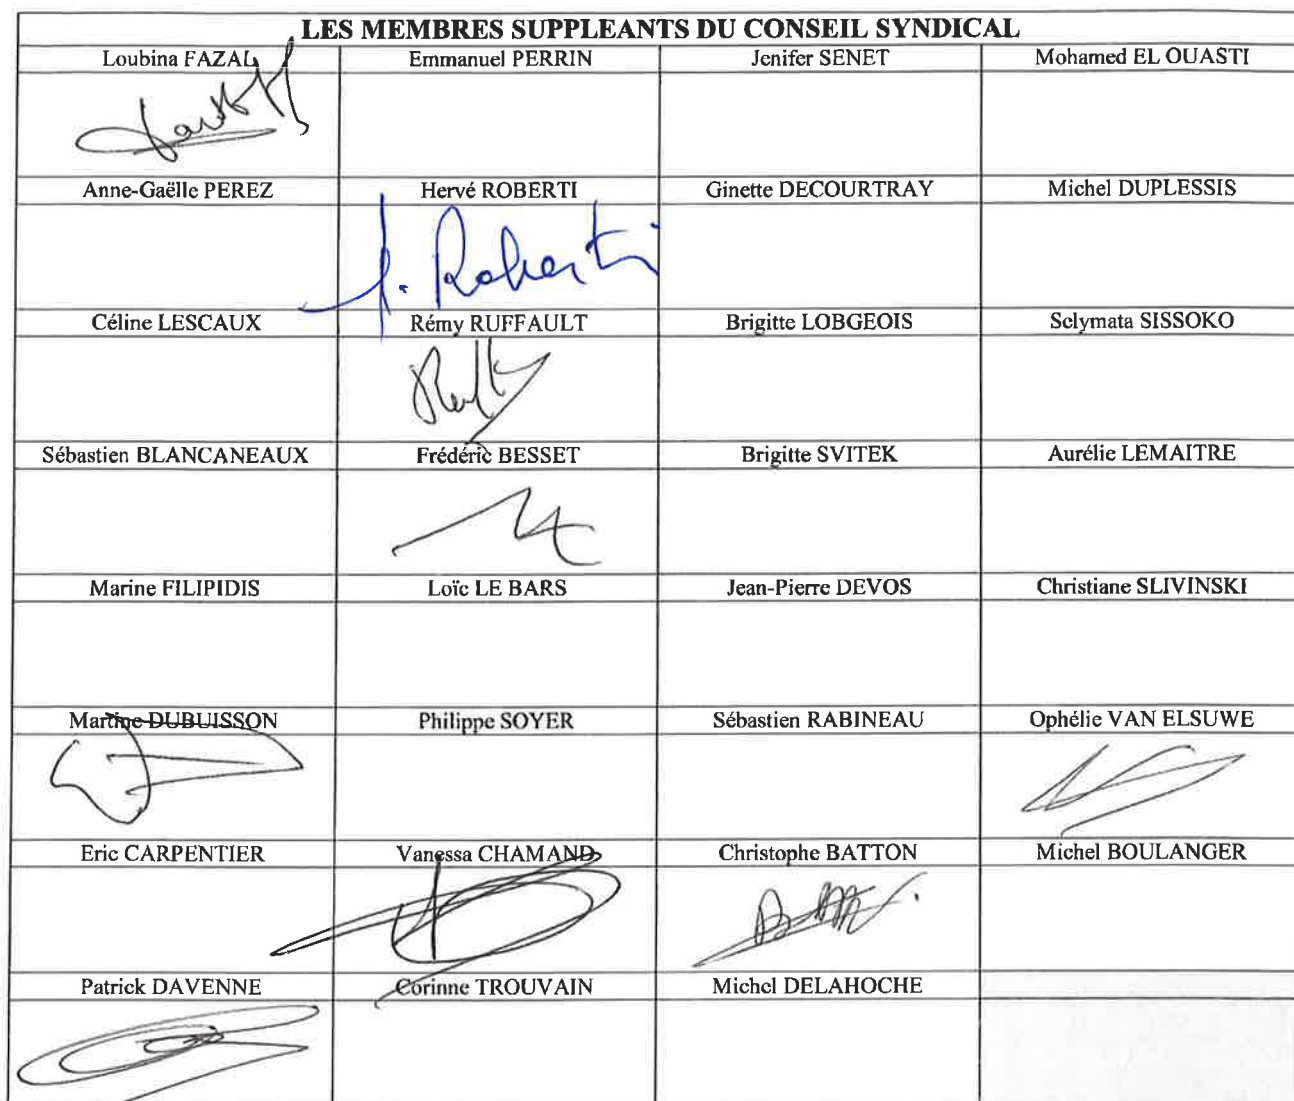 LES MEMBRES SUPPLEANTS DU CONSEIL SYNDICAL
Loubina FAZAL Emmanuel PERRIN Jenifer SENET Mohamed EL OUASTI
Anne-Gaëlle PEREZ Hervé ROBERTI Ginette DECOURTRAY Michel DUPLESSIS
h. Roberti
Céline LESCAUX Rémy RUFFAULT Brigitte LOBGEOIS Selymata SISSOKO
Sébastien BLANCANEAUX Frédéric BESSET Brigitte SVITEK Aurélie LEMAITRE
Marine FILIPIDIS Loïc LE BARS Jean-Pierre DEVOS Christiane SLIVINSKI
Martine DUBUISSON Philippe SOYER Sébastien RABINEAU Ophélie VAN ELSUWE
Eric CARPENTIER Vanessa CHAMAND Christophe BATTON Michel BOULANGER
Patrick DAVENNE Corinne TROUVAIN Michel DELAHOCHE